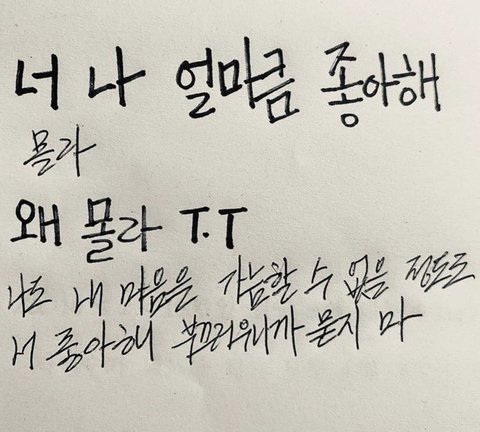 너 나 얼마큼 좋아해
몰라
왜 몰라 T.T
나도 내 마음을 가늠할 수 없을 정도로
너 좋아해 부끄러우니까 묻지 마